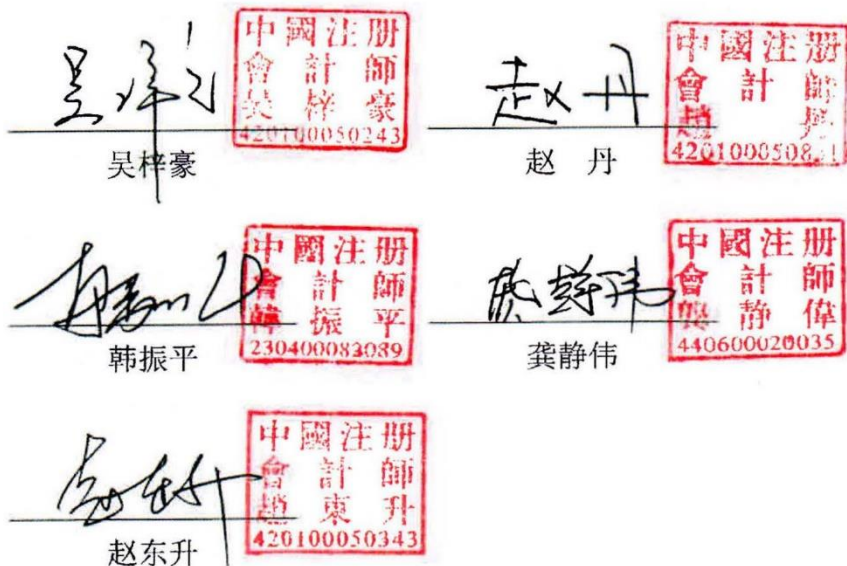 中國注册
會計師
吴梓豪
420100050243
吴梓豪
中國注册
會計師
趙丹
赵 丹
中國注册
會計師
韓振平
230400083089
韩振平
中國注册
會計師
龔静偉
440600020035
龚静伟
中國注册
會計師
趙東升
420100050343
赵东升